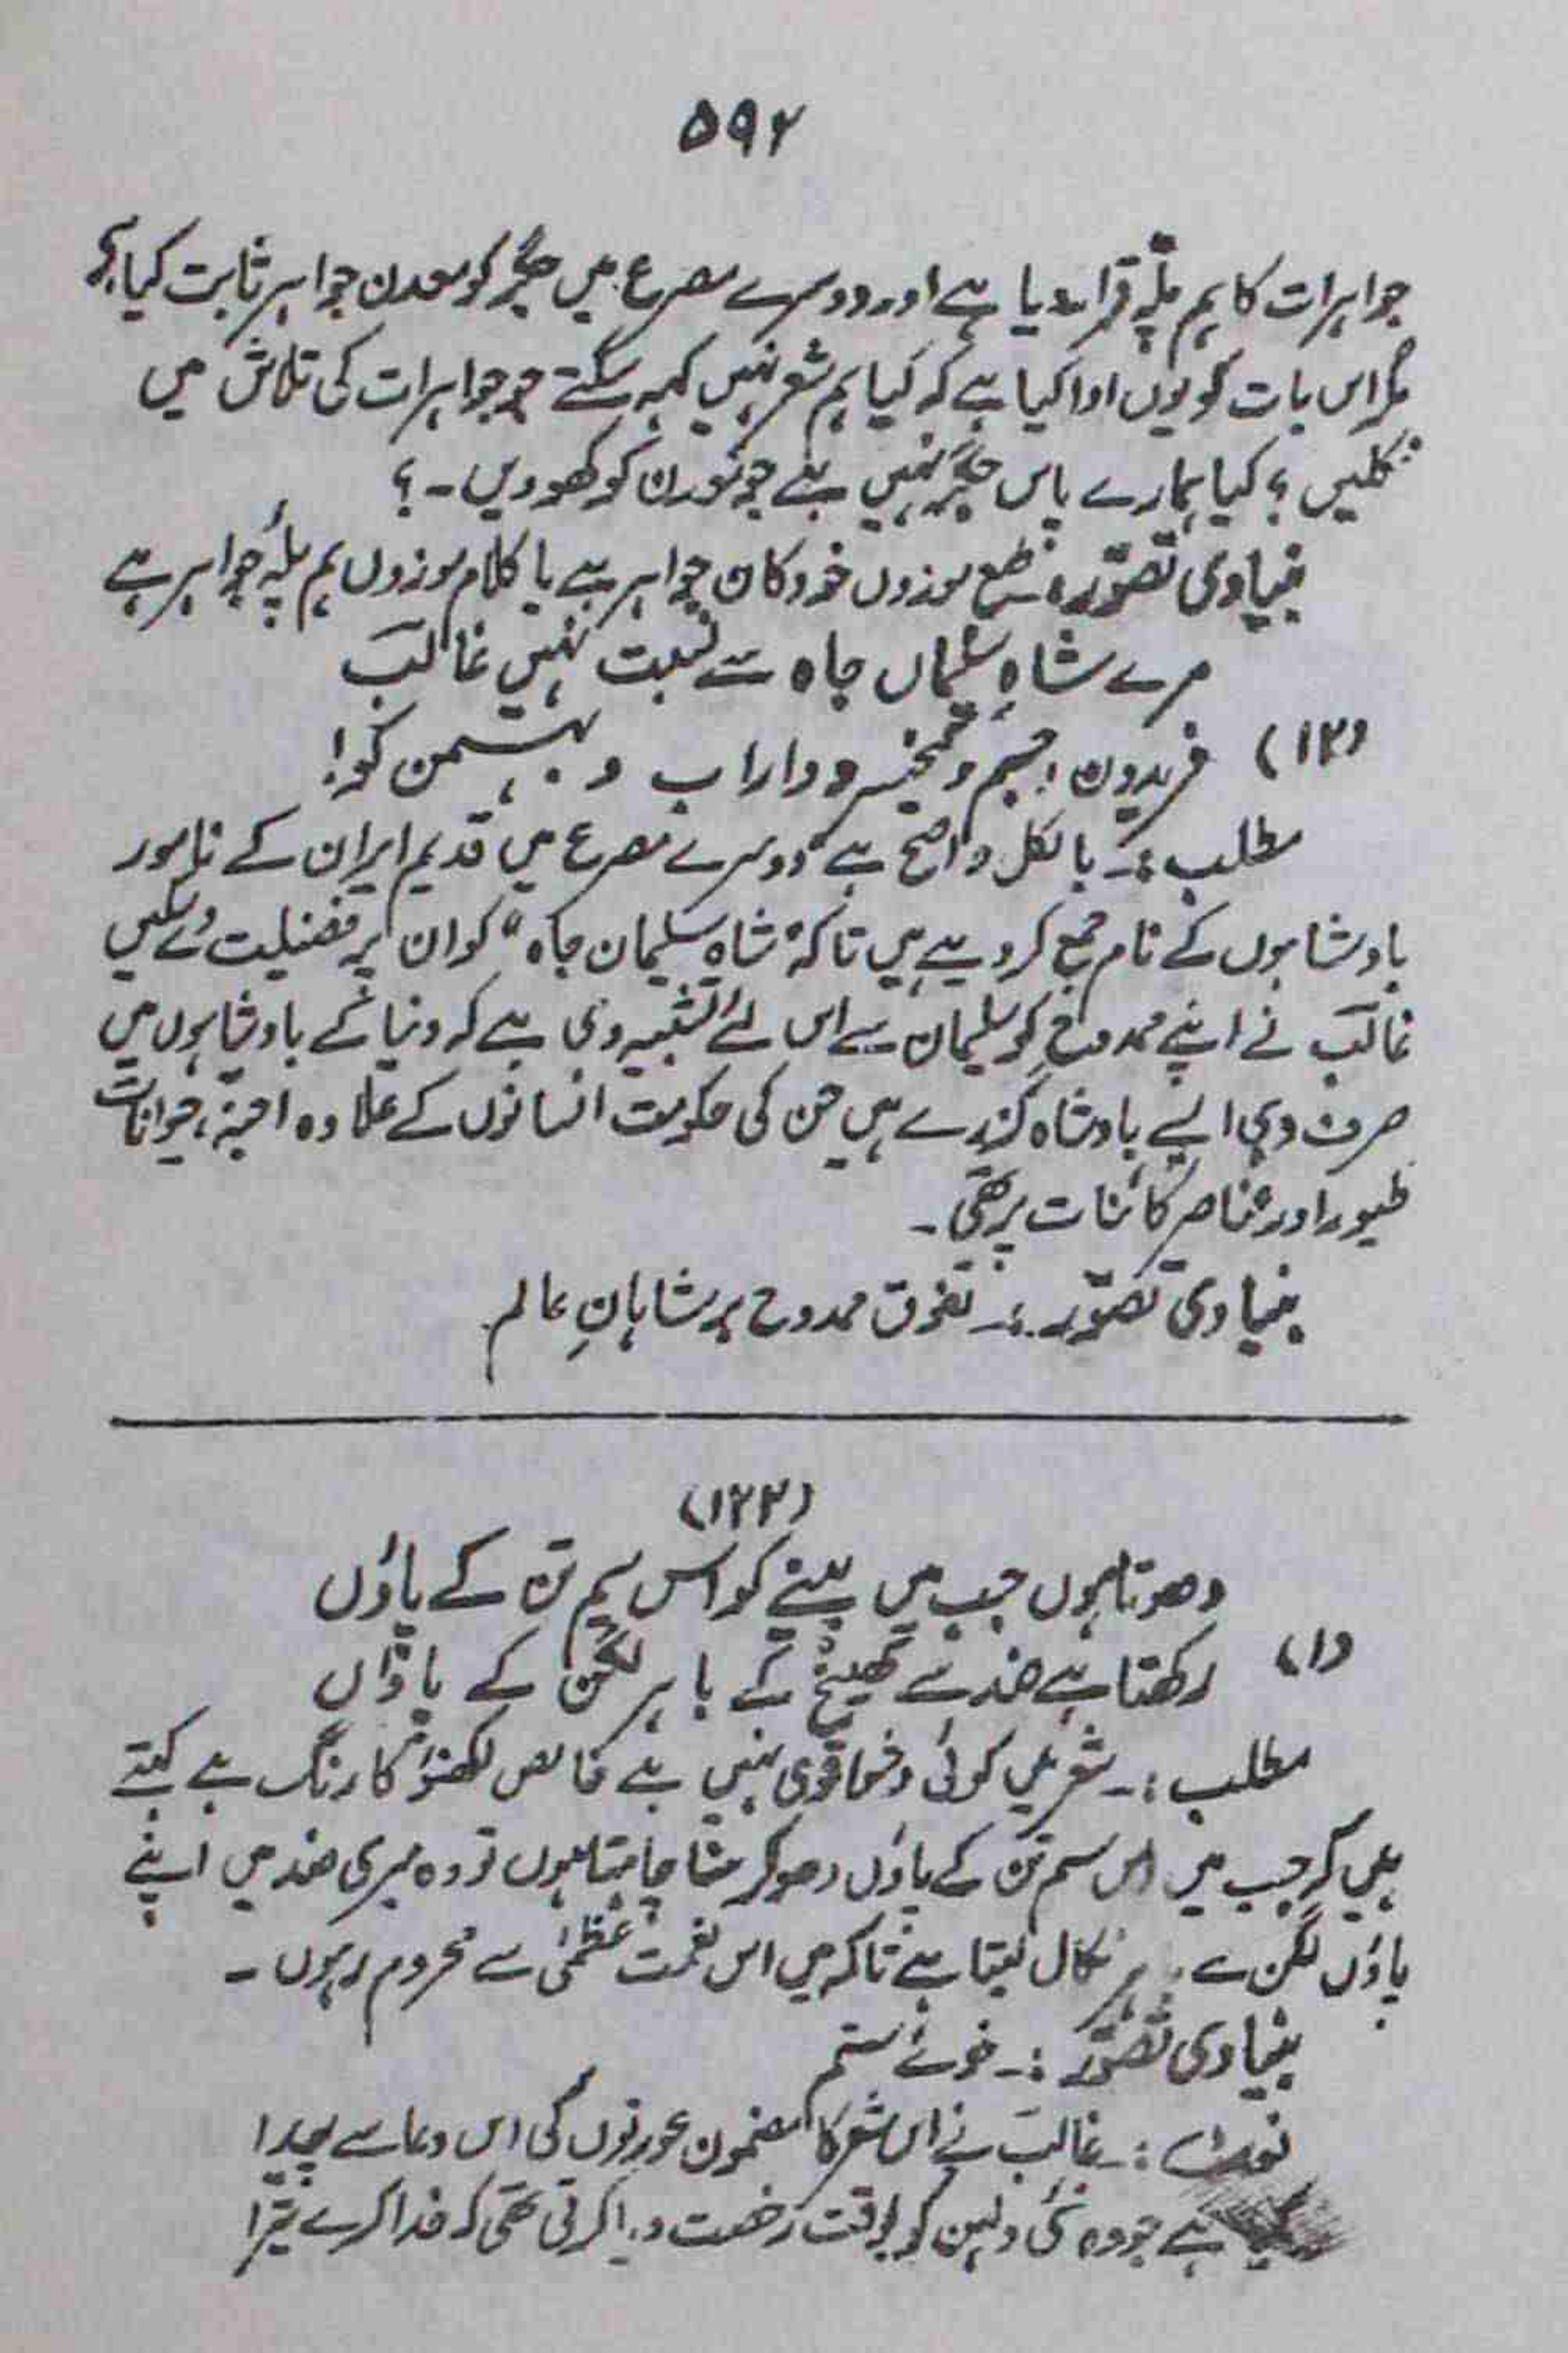 ۵۹۲
جواہرات کا ہم پلّہ قرار دیا ہے اور دوسرے مصرع میں جگر کو معدن جواہر ثابت کیا ہے
مگر اس بات کو یوں ادا کیا ہے کہ کیا ہم شعر نہیں کہہ سکتے جو جواہرات کی تلاش میں
نکلیں؟ کیا ہمارے پاس جگر نہیں ہے جو معدن کو کھودیں۔؟
بنیادی تصوّر:۔ طبع موزوں خود کان جواہر ہے یا کلام موزوں ہم پلۂ جواہر ہے
مرے شاہِ سلیماں جاہ سے نسبت نہیں غالبؔ
(۱۲) فریدون و جم و کیخسرو و داراب و بہمن کو!
مطلب:۔ بالکل واضح ہے دوسرے مصرع میں قدیم ایران کے نامور
بادشاہوں کے نام جمع کر دیے ہیں تاکہ "شاہِ سلیمان جاہ" کو ان پر فضیلت دے سکیں
غالبؔ نے اپنے ممدوح کو سلیمان سے اس لئے تشبیہ دی ہے کہ دنیا کے بادشاہوں میں
صرف وہی ایسے بادشاہ گزرے ہیں جن کی حکومت انسانوں کے علاوہ اجنّہ، حیوانات
طیور اور عناصر کائنات پر تھی۔
بنیادی تصوّر:۔ تفوق ممدوح بر شاہانِ عالم
(۱۲۲)
دھوتا ہوں جب میں پینے کو اس سیم تن کے پاؤں
(۱) رکھتا ہے ضد سے کھینچ کے باہر لگن کے پاؤں
مطلب:۔ شعر میں کوئی دخوبی نہیں ہے خالص لکھنؤ کا رنگ ہے کہتے
ہیں کہ جب میں اس سیم تن کے پاؤں دھو کر پینا چاہتا ہوں تو وہ میری ضد میں اپنے
پاؤں لگن سے باہر نکال لیتا ہے تاکہ میں اس نعمت عظمیٰ سے محروم رہوں۔
بنیادی تصوّر:۔ خوئے ستم
نوٹ:۔ غالبؔ نے اس شعر کا مضمون عورتوں کی اس دعا سے پیدا
کیا ہے جو وہ نئی دلہن کو بوقت رخصت دیا کرتی تھی کہ خدا کرے تیرا